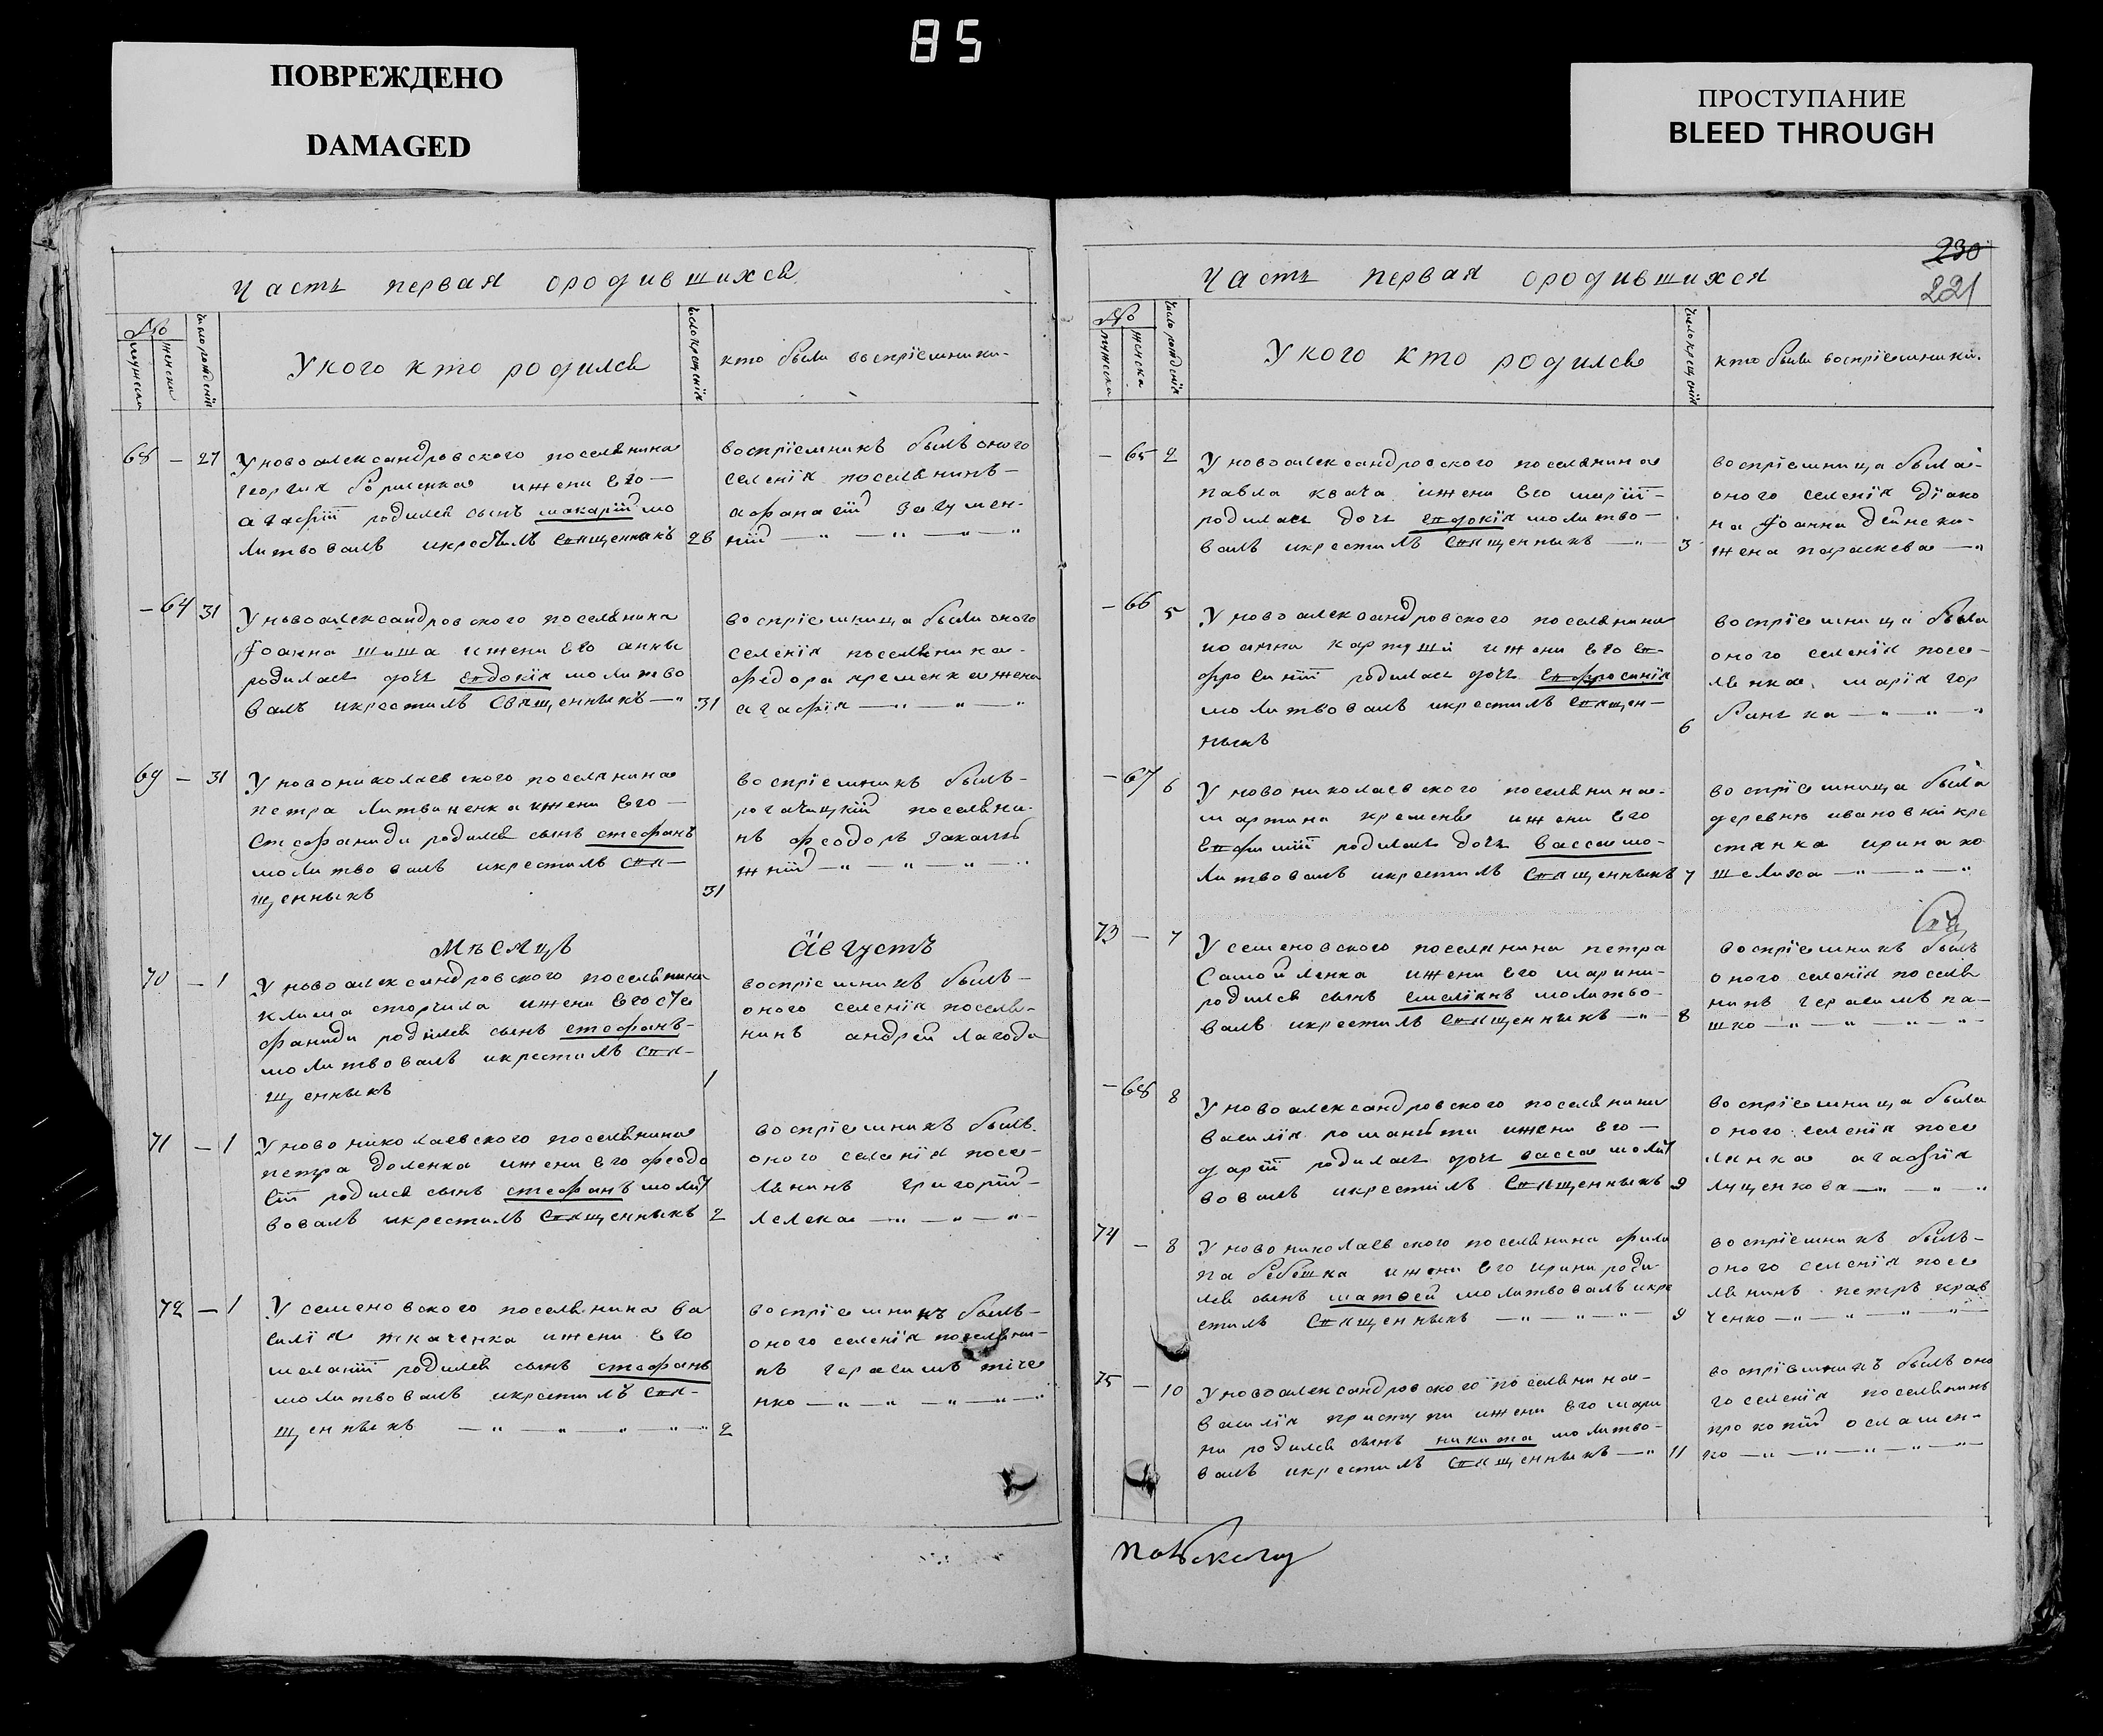 85
ПОВРЕЖДЕНО
DAMAGED
ПРОСТУПАНИЕ
BLEED THROUGH
Часть первая ородившихся
№
мужеска
женска
число рождения
У кого кто родился
число крещенія
кто были воспріемники
68 — 27
Уновоалександровскаго поселянина
георгия ижени Его —
агафіи родился сынъ макарій мо
литвовалъ икрестилъ Священникъ 28
воспріемникъ былъ оного
селенія поселянинъ —
афанасій Загумен-
ній — " — " — " — "
— 64 31
Уновоалександровского поселянина
Іоанна шиша ижени Его анны
родилась дочь Евдокія молитво
валъ икрестилъ Священникъ — " 31
воспріемница были оного
селенія поселянина -
федора кременя жена
агафія — " — " — "
69 — 31
Уновониколаевского поселянина
петра литвиненка ижени Его —
Стефаниды родился сынъ стефанъ
молитвовалъ икрестилъ Свя-
щенникъ 31
воспріемникъ былъ -
рогачицкій поселяни-
нъ феодоръ
жній — " — " — " — "
Мѣсяцъ Августъ
70 — 1
Уновоалександровского поселянина
клима сторчила ижени Его сте
фаниди родился сынъ стефанъ -
молитвовалъ икрестилъ Свя-
щенникъ 1
воспріемникъ былъ —
оного селенія поселя-
нинъ андрей лагода
71 — 1
Уновониколаевского поселянина
петра доленка ижени Его феодо
сіи родился сынъ стефанъ молит
вовалъ икрестилъ Священникъ 2
воспріемникъ былъ
оного селенія посе-
лянинъ григорій —
лелека — " — " — " -
72 — 1
У семеновского поселянина ва
силія ткаченка ижени Его
меланіи родился сынъ стефанъ
молитвовалъ икрестилъ Свя-
щенникъ — " — " — " — " 2
воспріемникъ былъ —
оного селенія поселяни-
нъ герасимъ
нко — " — " — " — "
230
221
Часть первая ородившихся
№
мужеска
женска
число рождения
У кого кто родился
число крещенія
кто были воспріемники.
— 65 2
Уновоалександровского поселянина
павла квача ижени Его маріи —
родилась дочь Евдокія молитво —
валъ икрестилъ Священникъ — " — 3
воспріемница была -
оного селенія діако
на Іоанна дейнеки -
жена параскева — "
— 66 5
Уновоалександровского поселянина
иоанна картуши ижени Его Ев-
фросиніи родилась дочь Евфросинія
молитвовалъ икрестилъ Священ —
никъ 6
воспріемница была
оного селенія посе —
лянка марія гор
банька — " — " — "
— 67 6
Уновониколаевского поселянина -
мартина кременя ижени Его
Евфиміи родилась дочь васса мо -
литвовалъ икрестилъ Священникъ 7
воспріемница была
деревни ивановки кре
стянка ирина ко
шелиха — " — " — "
73 — 7
У семеновского поселянина петра
Самойленка ижени Его марини -
родился сынъ Емеліянъ молитво-
валъ икрестилъ Священникъ — " — 8
воспріемникъ былъ
оного селенія поселя
нинъ герасимъ па —
шко — " — " — " — "
— 68 8
Уновоалександровского поселянина
василія ижени Его —
даріи родилась дочь васса молит
вовалъ икрестилъ Священникъ 9
воспріемница была
оного селенія посе
лянка агафія
луценкова — " — " — "
74 — 8
Уновониколаевского поселянина фили
па бебешка ижени Его ирини роди-
лся сынъ матѳей молитвовалъ икре
стилъ Священникъ — " — " — " 9
воспріемникъ былъ —
оного селенія посе
лянинъ петръ крав
ченко — " — " — " — "
75 — 10
Уновоалександровского поселянина -
василія приступи ижени Его мари
ни родился сынъ никита молитво-
валъ икрестилъ Священникъ — " 11
воспріемникъ былъ оно
го селенія поселянинъ
прокопій ослашен -
ко — " — " — " — " —